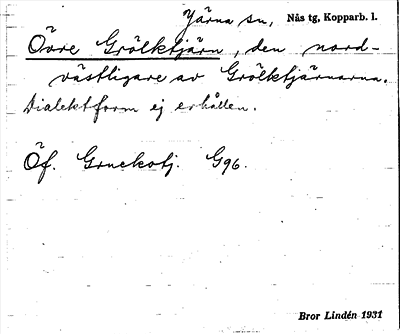 Järna sn, Nås tg, Kopparb. l.
Övre Grölktjärn, den nord-
västligare av Grölktjärnarna.
Dialektform ej erhållen.
Öf. Gruckotj. G96.
Bror Lindén 1931